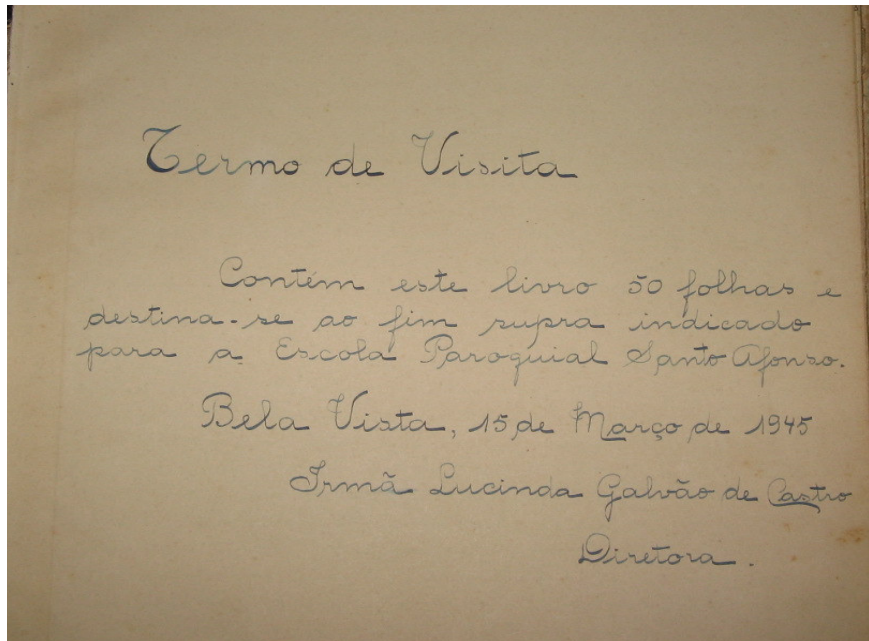 Termo de Visita
Contém este livro 50 folhas e
destina-se ao fim supra indicado
para a Escola Paroquial Santo Afonso.
Bela Vista, 15 de Março de 1945
Irmã Lucinda Galvão de Castro
Diretora.